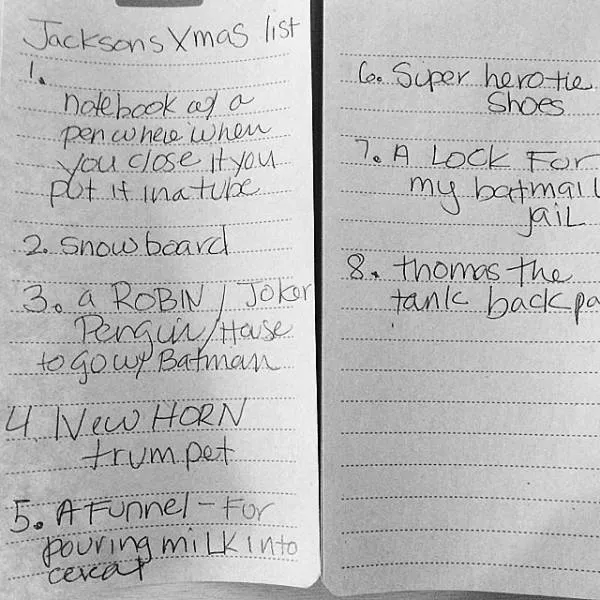 Jacksons Xmas list
1.
notebook w/ a
pen where when
you close it you
put it in a tube
2. snowboard
3. a ROBIN / Joker
Penguin/House
to go w/ Batman
4. New HORN
trumpet
5. A Funnel - For
pouring milk into
cereal
6. Super hero tie
shoes
7. A Lock For
my batman
jail
8. thomas the
tank backpa